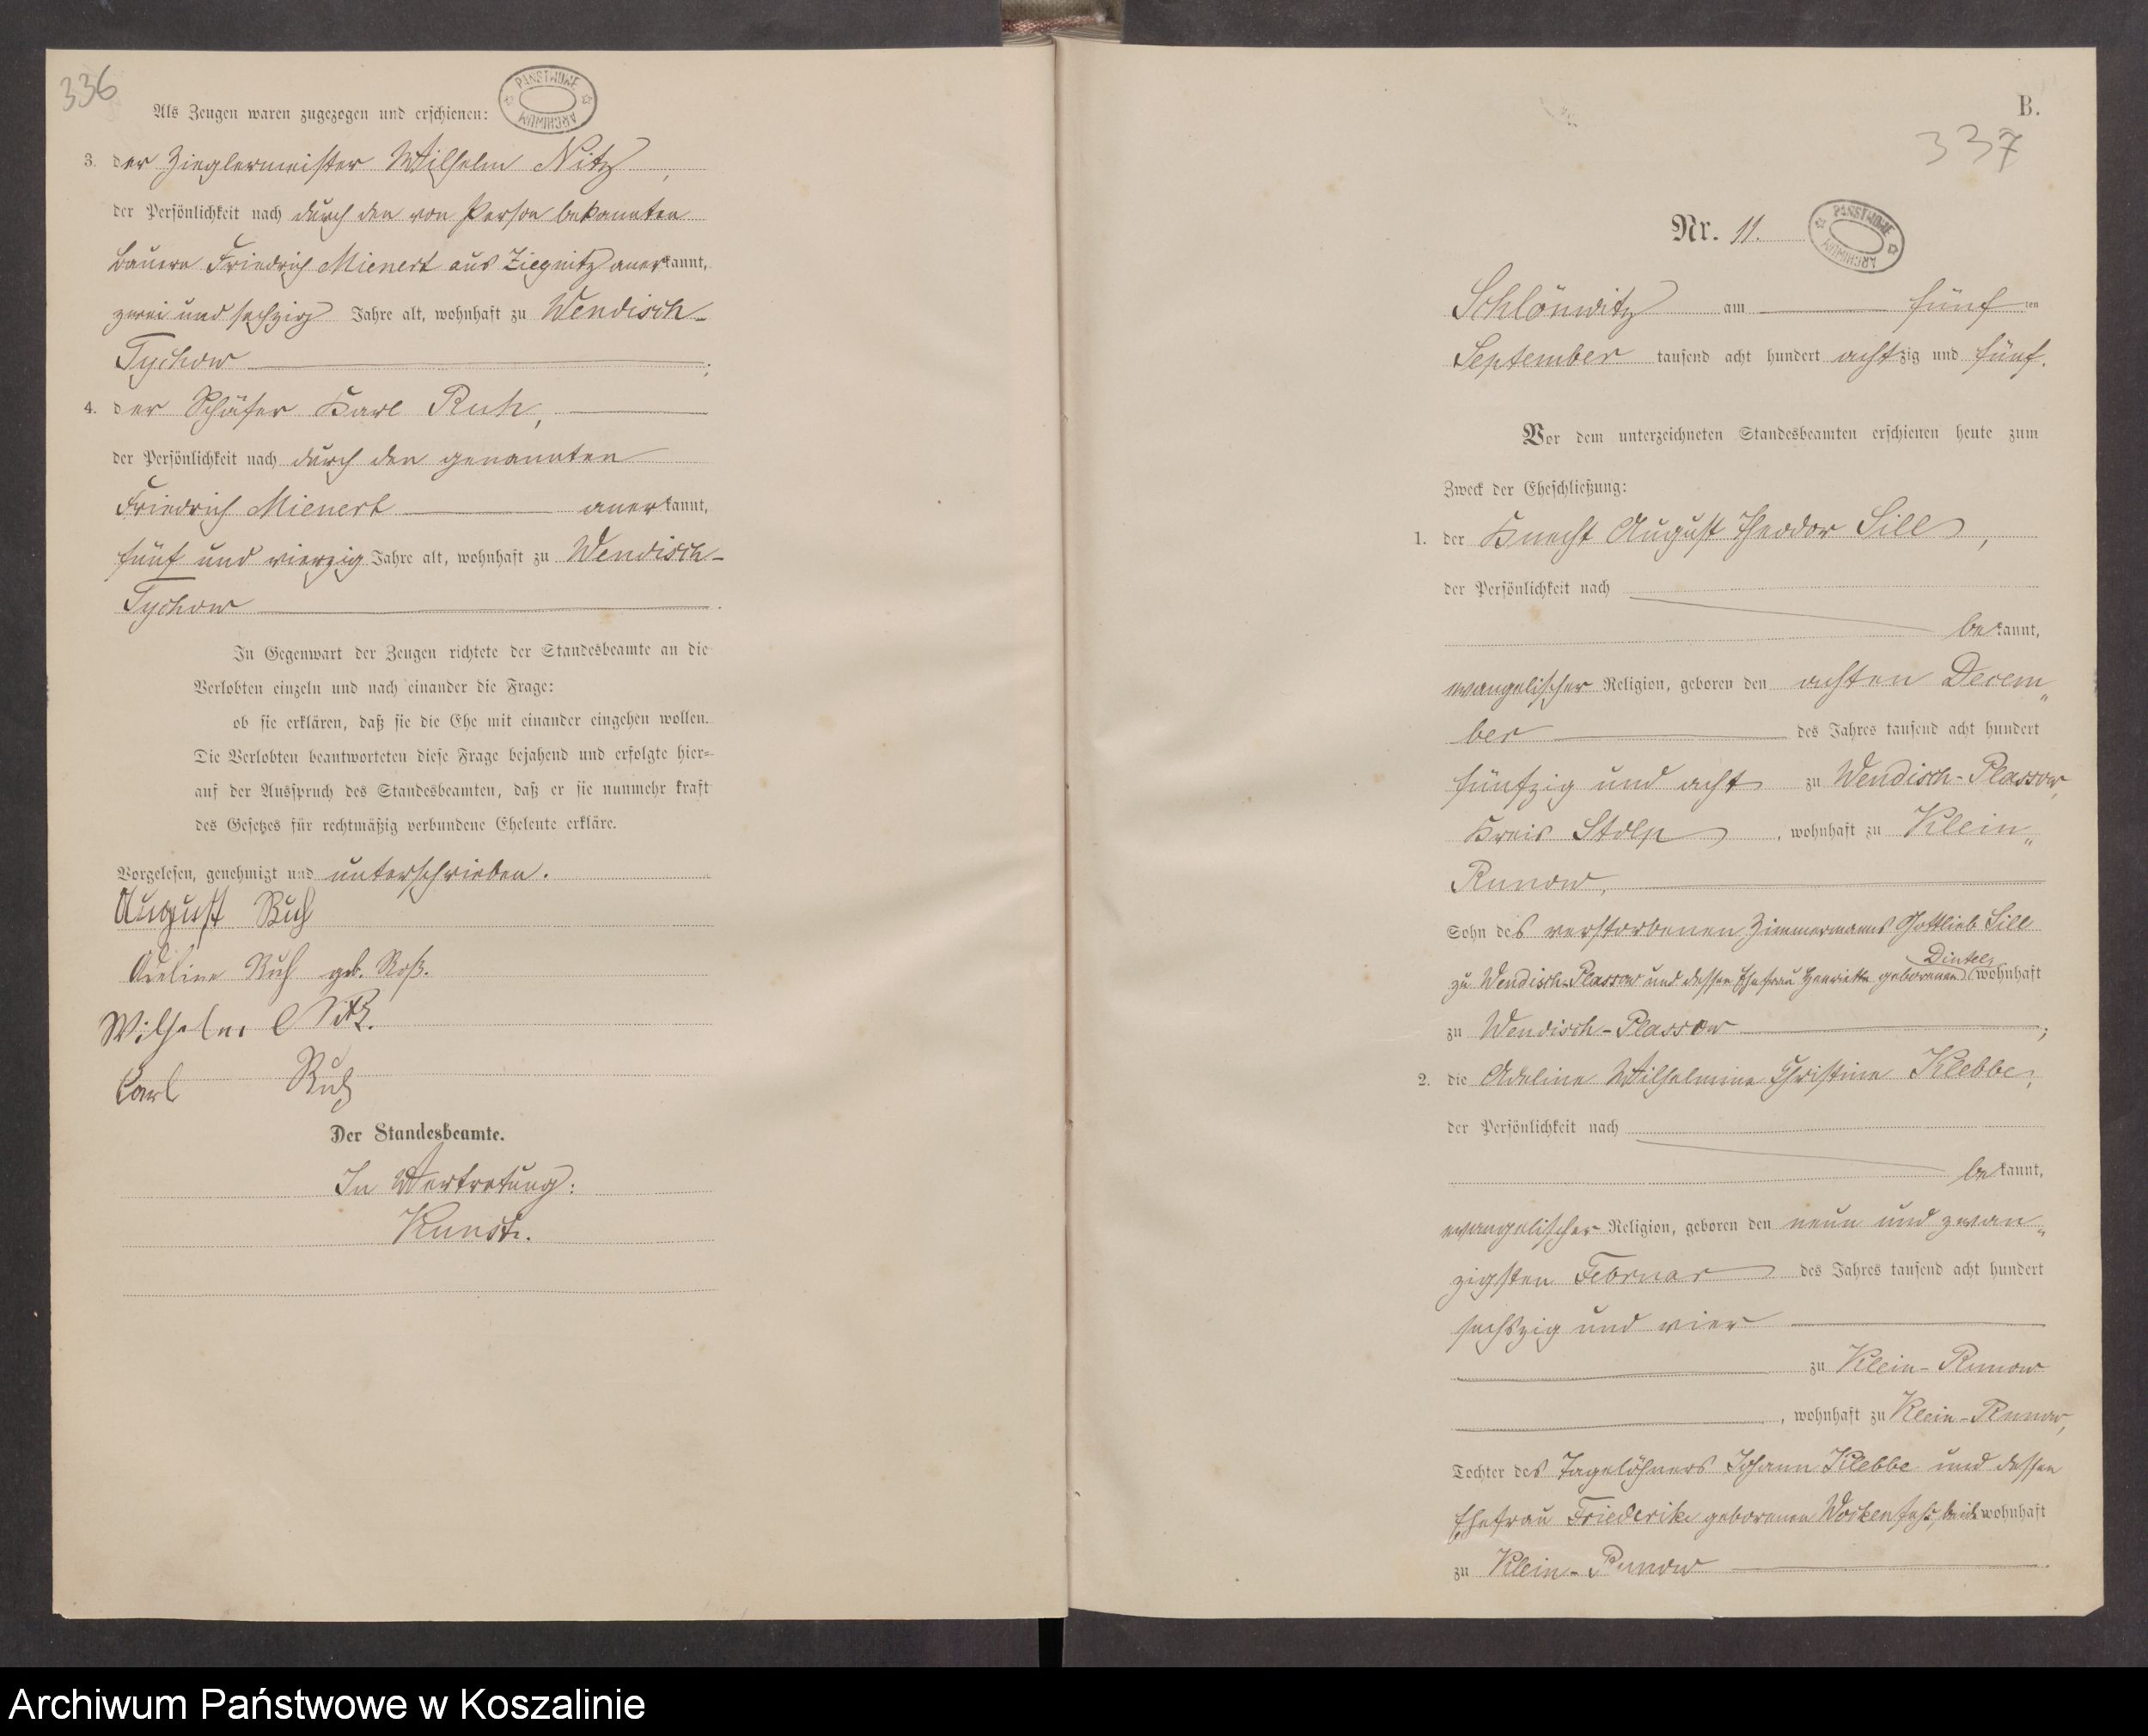 336
PAŃSTWOWE ARCHIWUM
Als Zeugen waren zugezogen und erschienen:
3. der Zieglermeister Wilhelm Nitz,
der Persönlichkeit nach durch den von Person bekannten
Bauern Friedrich Mienert aus Ziegnitz anerkannt,
zwei und sechzig Jahre alt, wohnhaft zu Wendisch-
Tychow;
4. der Schäfer Karl Ruh,
der Persönlichkeit nach durch den genannten
Friedrich Mienert anerkannt,
fünf und vierzig Jahre alt, wohnhaft zu Wendisch-
Tychow.
In Gegenwart der Zeugen richtete der Standesbeamte an die
Verlobten einzeln und nach einander die Frage:
ob sie erklären, daß sie die Ehe mit einander eingehen wollen.
Die Verlobten beantworteten diese Frage bejahend und erfolgte hier=
auf der Ausspruch des Standesbeamten, daß er sie nunmehr kraft
des Gesetzes für rechtmäßig verbundene Eheleute erkläre.
Vorgelesen, genehmigt und unterschrieben.
August Ruh
Adeline Ruh geb. Roß.
Wilhelm Nitz.
Carl Ruh
Der Standesbeamte.
In Vertretung:
Kunst.
B.
337
Nr. 11.
PAŃSTWOWE ARCHIWUM
Schlönwitz am fünf ten
September tausend acht hundert achtzig und fünf.
Vor dem unterzeichneten Standesbeamten erschienen heute zum
Zweck der Eheschließung:
1. der Knecht August Theodor Sill,
der Persönlichkeit nach
bekannt,
evangelischer Religion, geboren den achten Decem„
ber des Jahres tausend acht hundert
fünfzig und acht zu Wendisch-Plassow,
Kreis Stolp, wohnhaft zu Klein„
Runow,
Sohn des verstorbenen Zimmermanns Gottlieb Sill
zu Wendisch-Plassow und dessen Ehefrau Henriette geborenen Dintels wohnhaft
zu Wendisch-Plassow;
2. die Adeline Wilhelmine Christine Klebbe,
der Persönlichkeit nach
bekannt,
evangelischer Religion, geboren den neun und zwan„
zigsten Februar des Jahres tausend acht hundert
sechszig und vier
zu Klein-Runow
, wohnhaft zu Klein-Runow,
Tochter des Tagelöhners Johann Klebbe und dessen
Ehefrau Friederike geborenen Wockenfuß, beide wohnhaft
zu Klein-Runow.
Archiwum Państwowe w Koszalinie